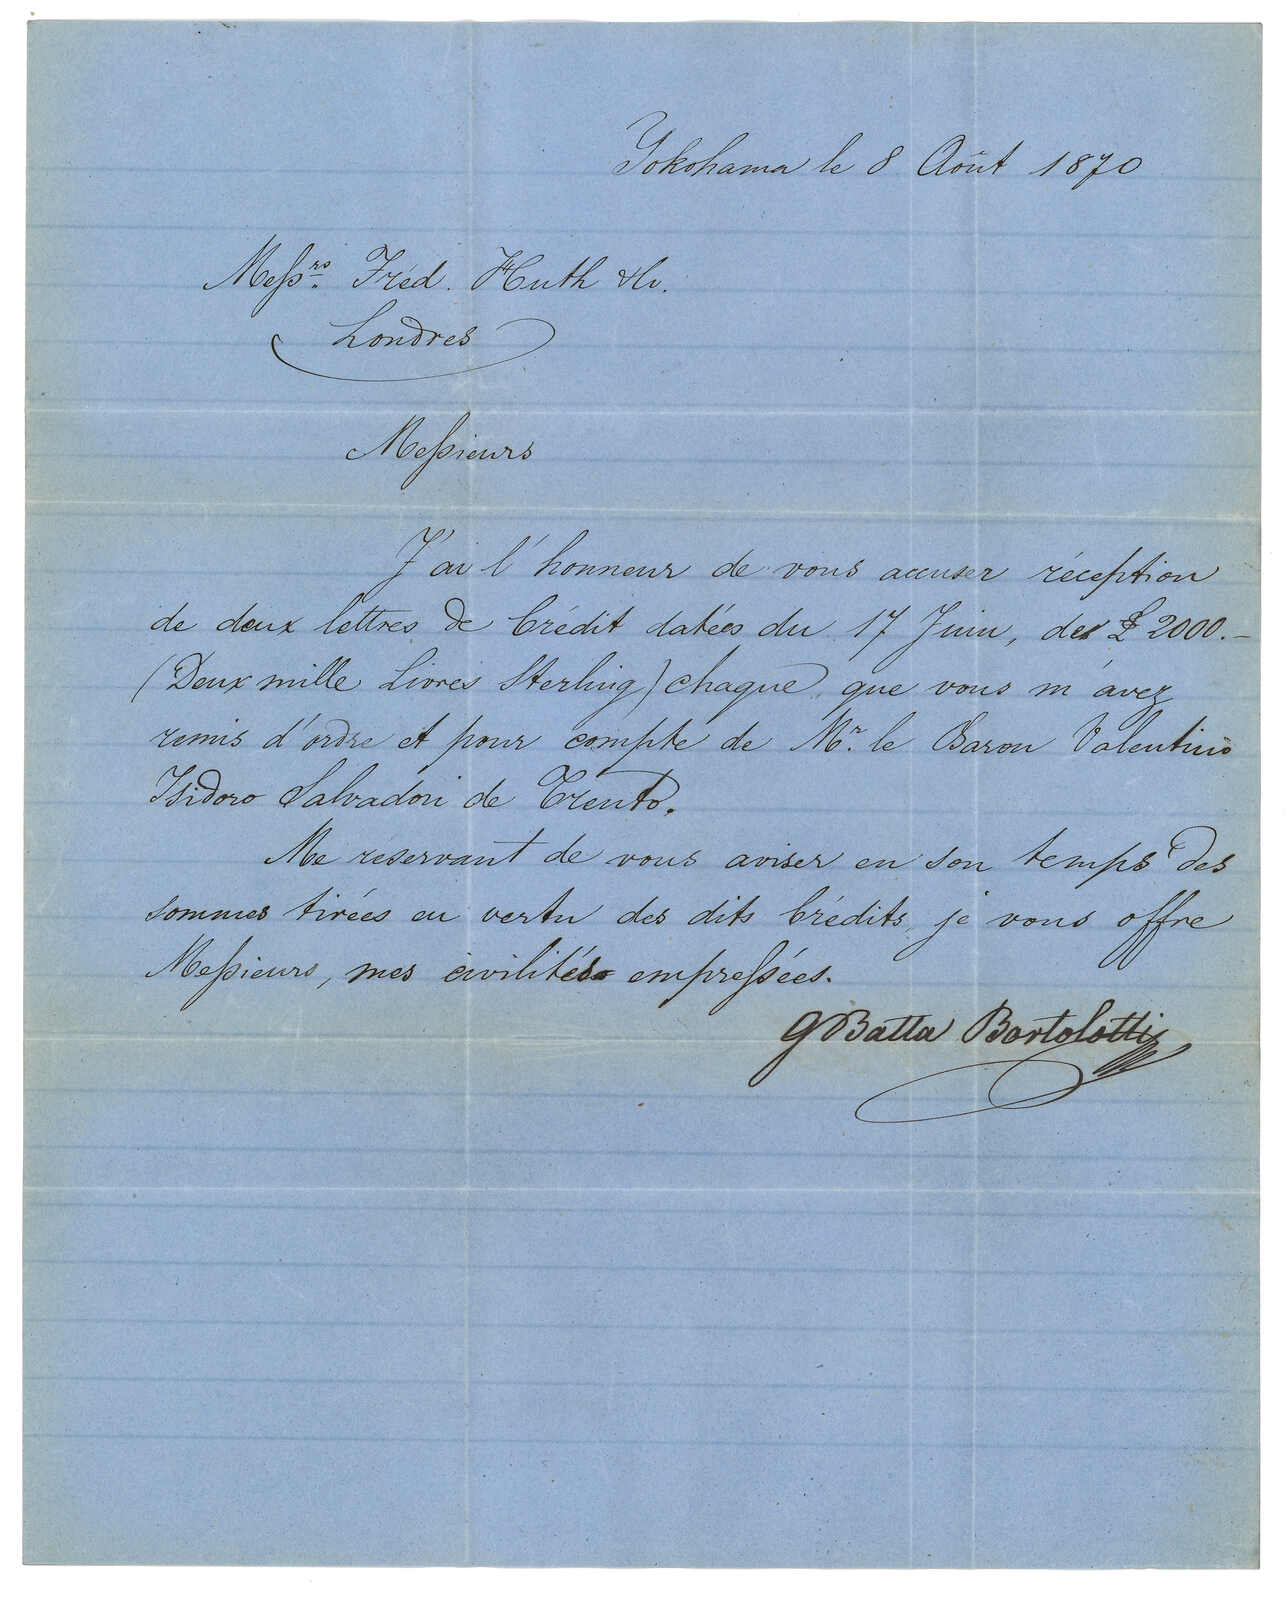 Yokohama le 8 Août 1870
Messrs. Fréd. Huth & Co.
Londres
Messieurs
J'ai l'honneur de vous accuser réception
de deux lettres de Crédit datées du 17 Juin, de £ 2000.–
(Deux mille Livres Sterling) chaque, que vous m'avez
remis d'ordre et pour compte de Mr. le Baron Valentino
Isidoro Salvadori de Trento.
Me réservant de vous aviser en son temps des
sommes tirées en vertu des dits Crédits, je vous offre
Messieurs, mes civilités empressées.
G Batta Bortolotti